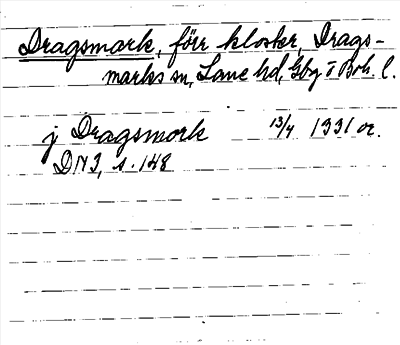 Dragsmark, förr kloster, Drags-
marks sn, Lane hd, Gbg o Boh. l.
j Dragsmork 13/4 1331 or.
DN 3, s. 148